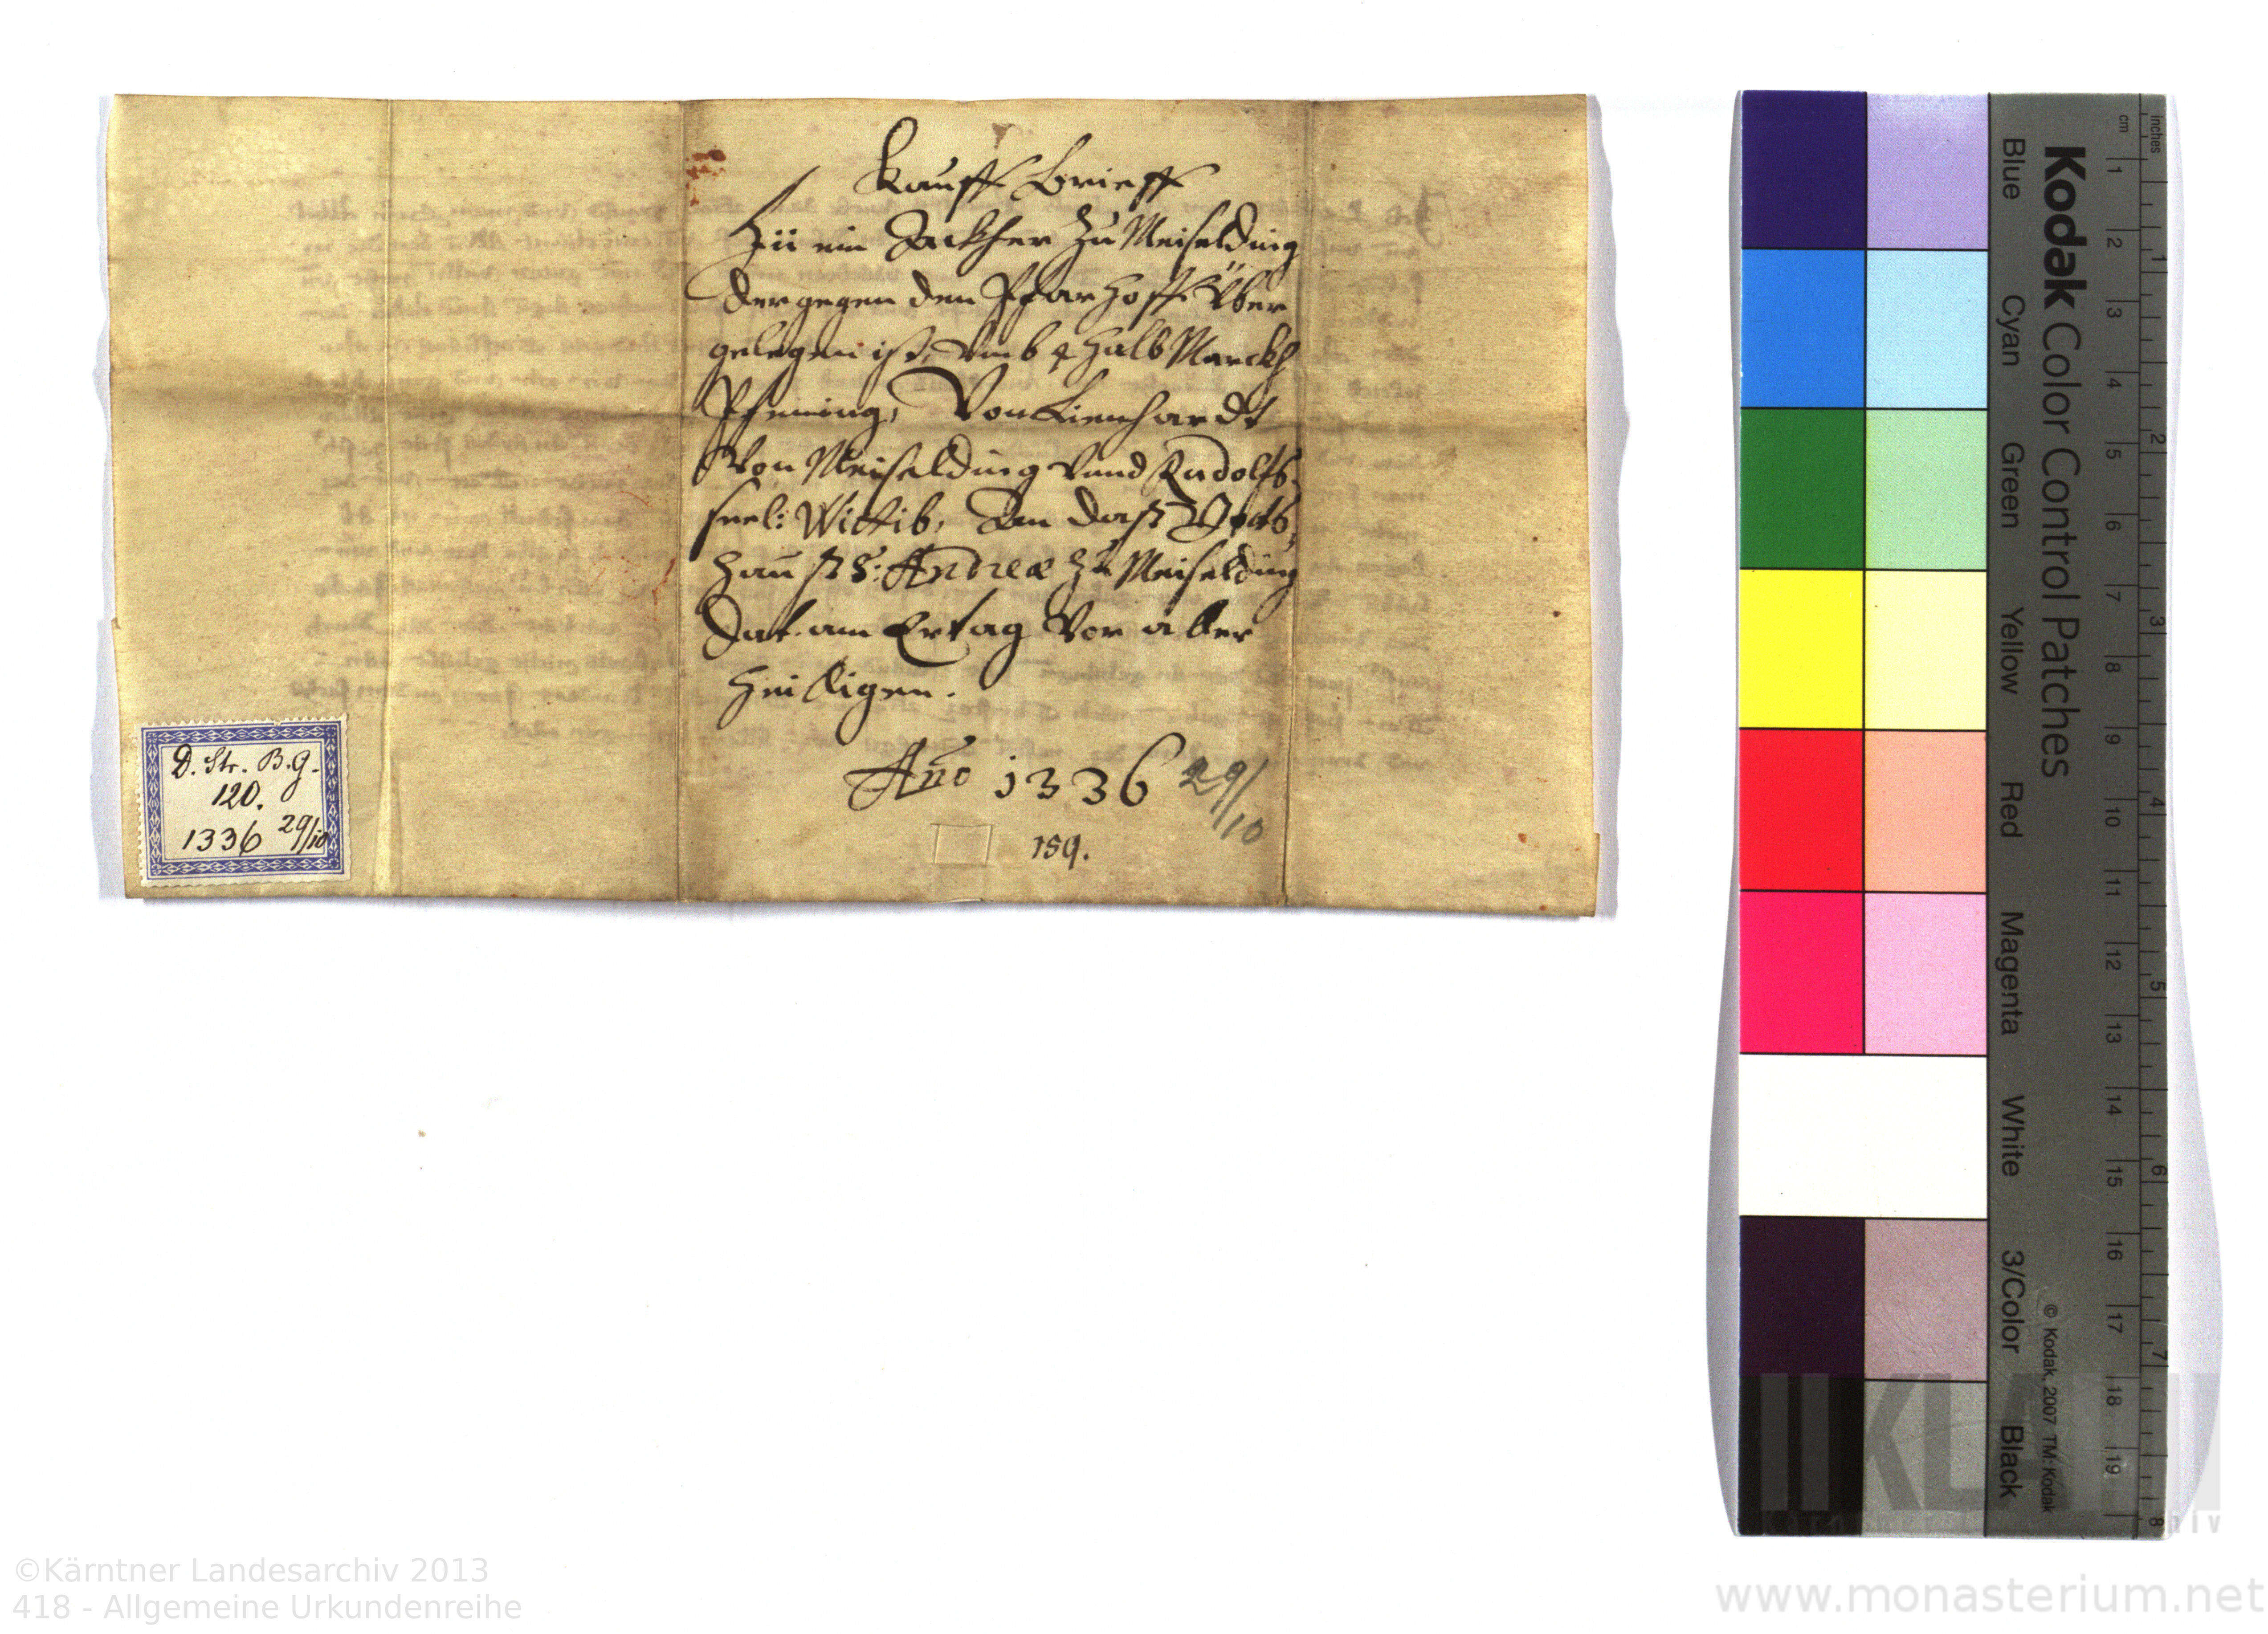 Kauff Brieff
Zu ein Ackher Zu Meiselding
der gegen den Pfarhoff Über
gelegen ist, vmb 4 halb Marckh
Pfening, Von Lienhardt
Von Meiselding Vnnd Rudolfs
seel: Wittib, An dass Gotts
hauss S: Andreæ Zu Meiselding
Dat. am Ertag Vor aller
Heiligen.
Año 1336 29/10
159.
D. Str. B. G.
120.
1336 29/10
Kodak Color Control Patches
Blue Cyan Green Yellow Red Magenta White 3/Color Black
© Kodak, 2007 TM: Kodak
cm 1 2 3 4 5 6 7 8 9 10 11 12 13 14 15 16 17 18 19
inches 1 2 3 4 5 6 7 8
KLA
©Kärntner Landesarchiv 2013
418 - Allgemeine Urkundenreihe
www.monasterium.net